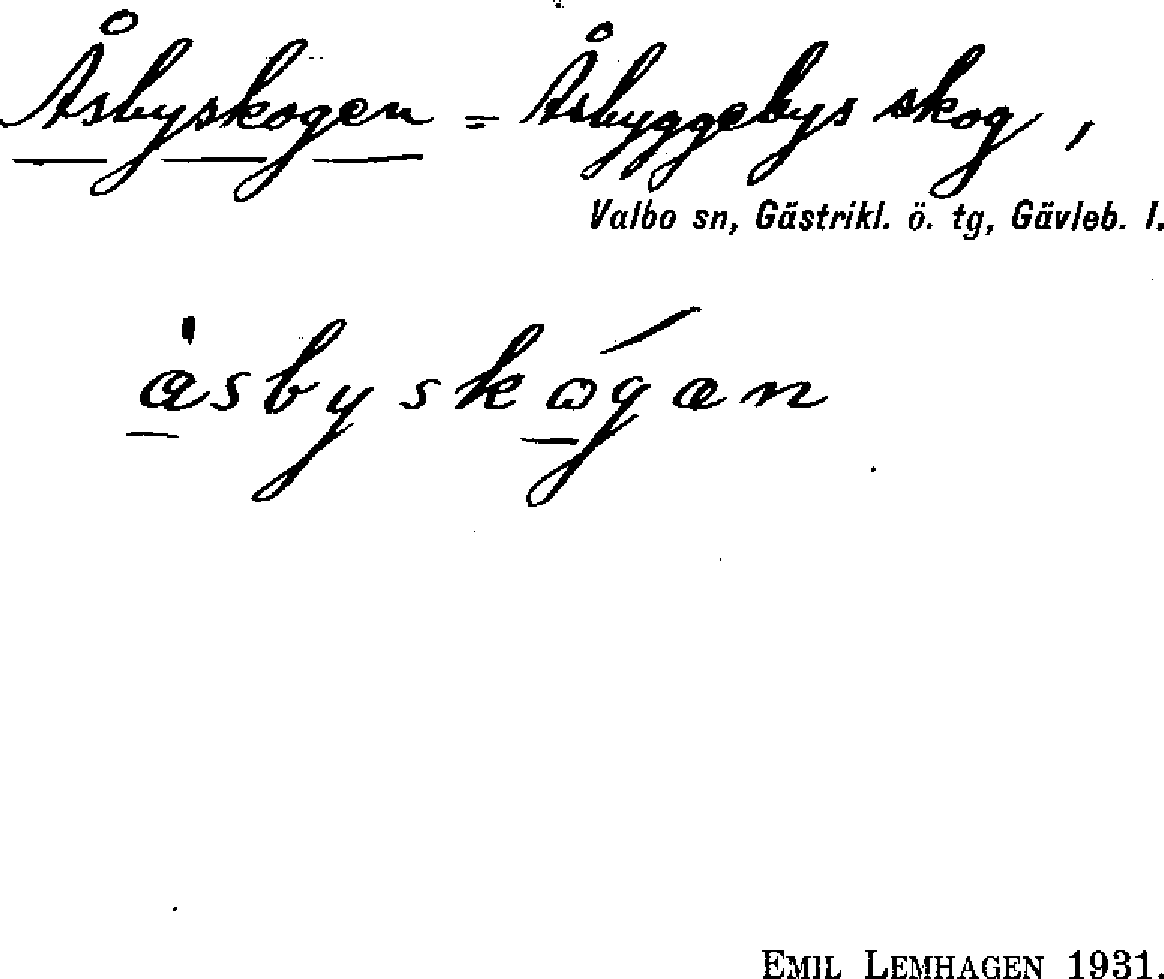 Åsbyskogen = Åsbyggebys skog,
Valbo sn, Gästrikl. ö. tg, Gävleb. l.
åsbyskωgæn
EMIL LEMHAGEN 1931.